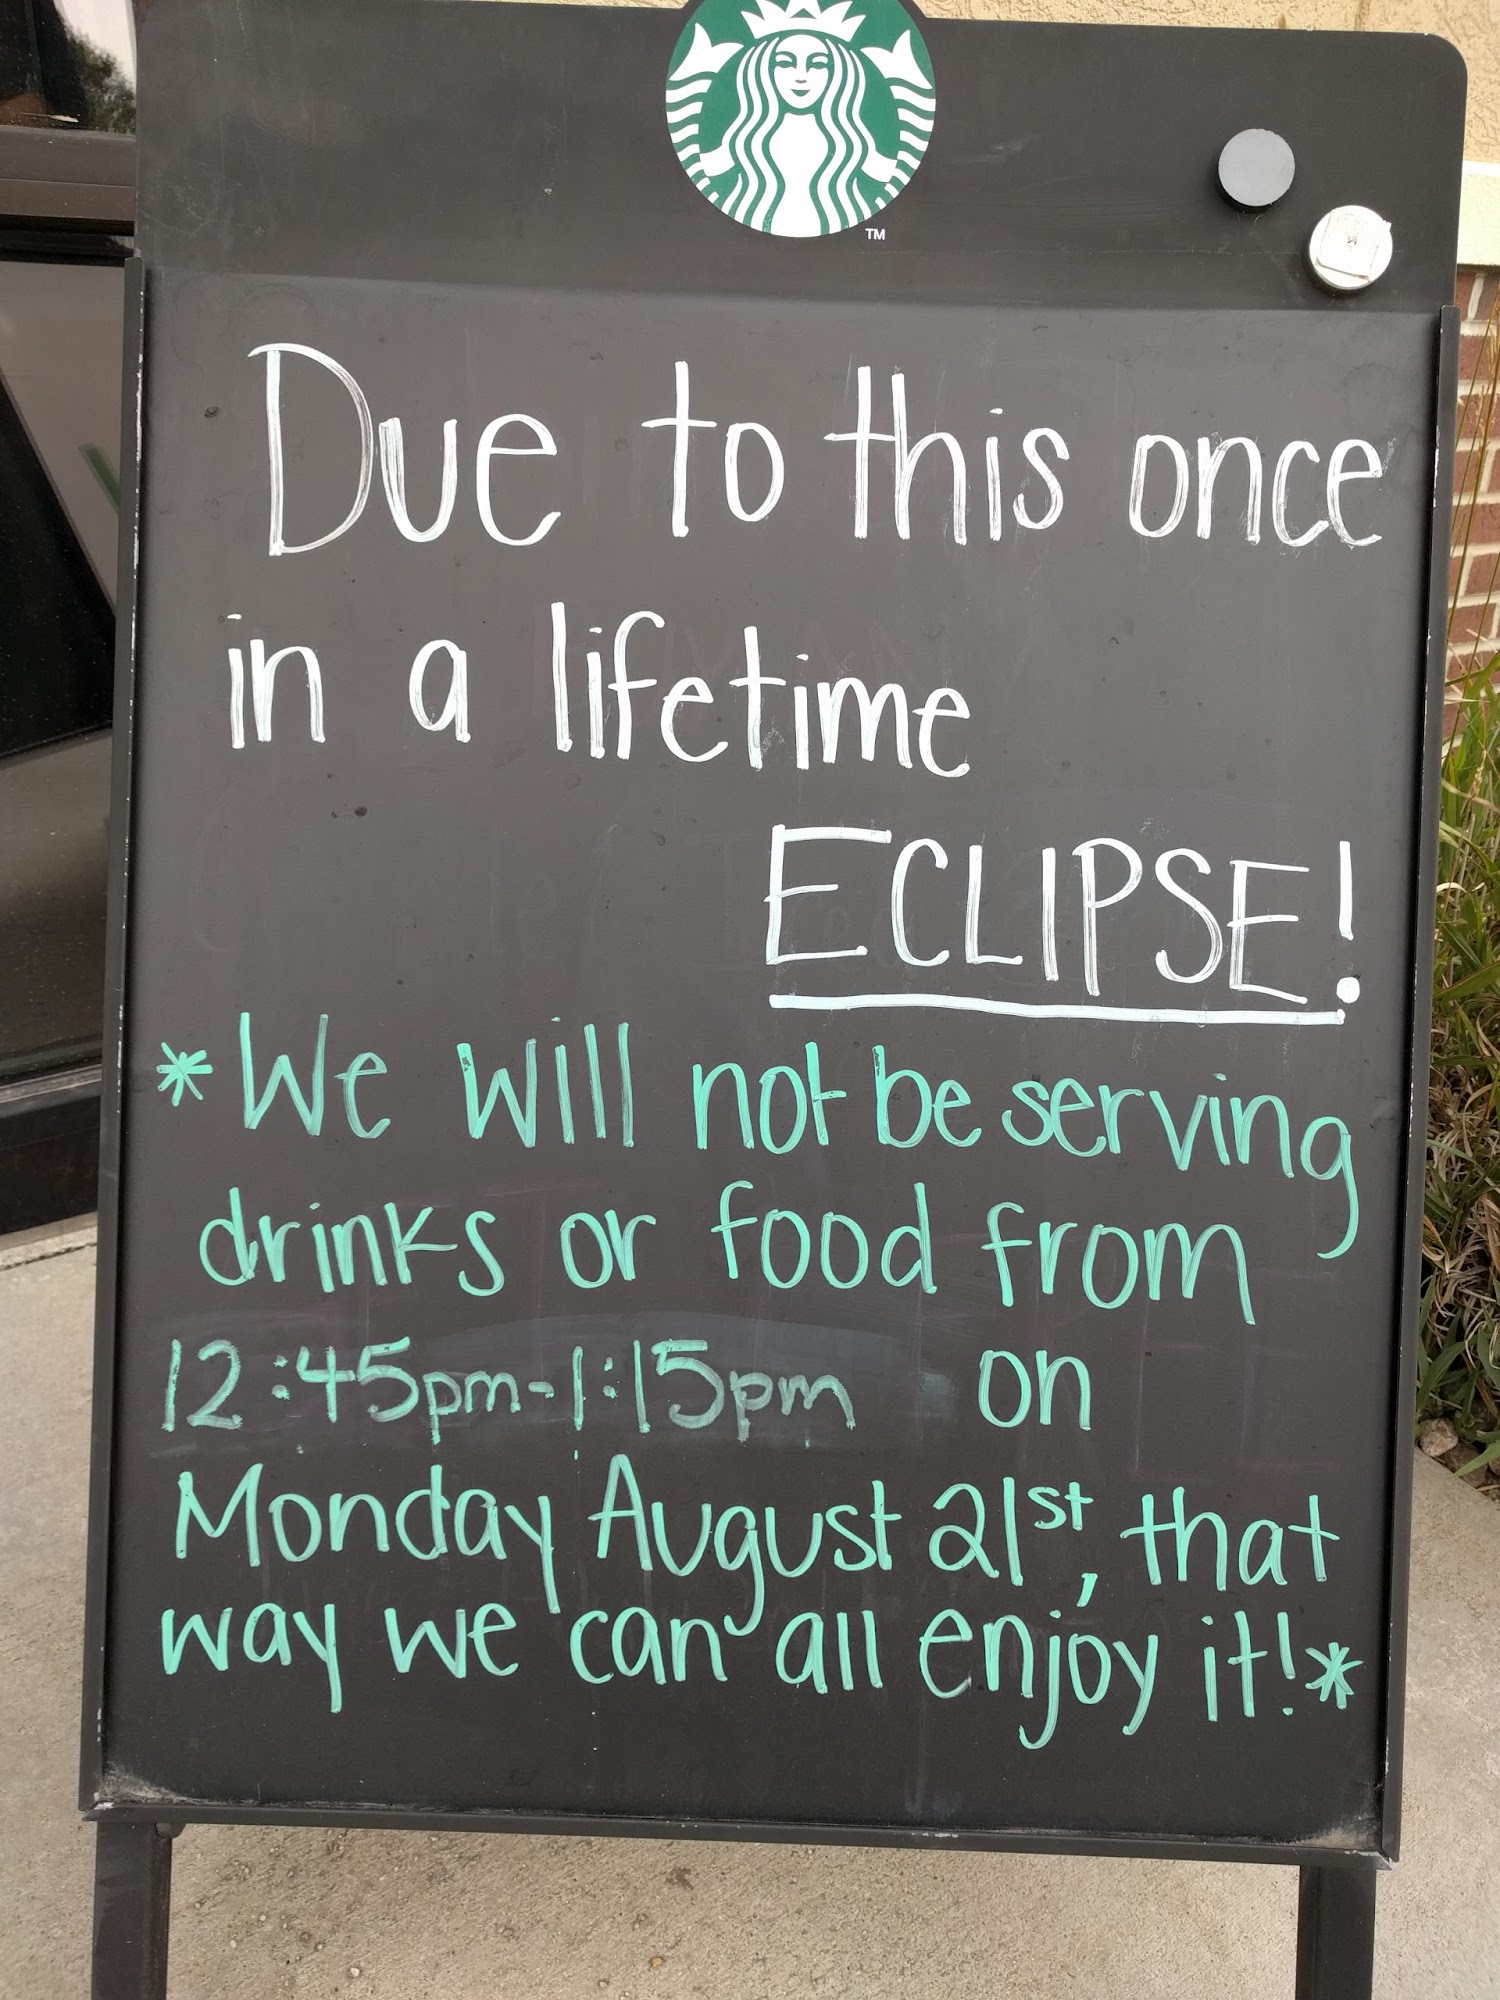 TM
Due to this once
in a lifetime
ECLIPSE!
*We will not be serving
drinks or food from
12:45pm-1:15pm on
Monday August 21st, that
way we can all enjoy it!*